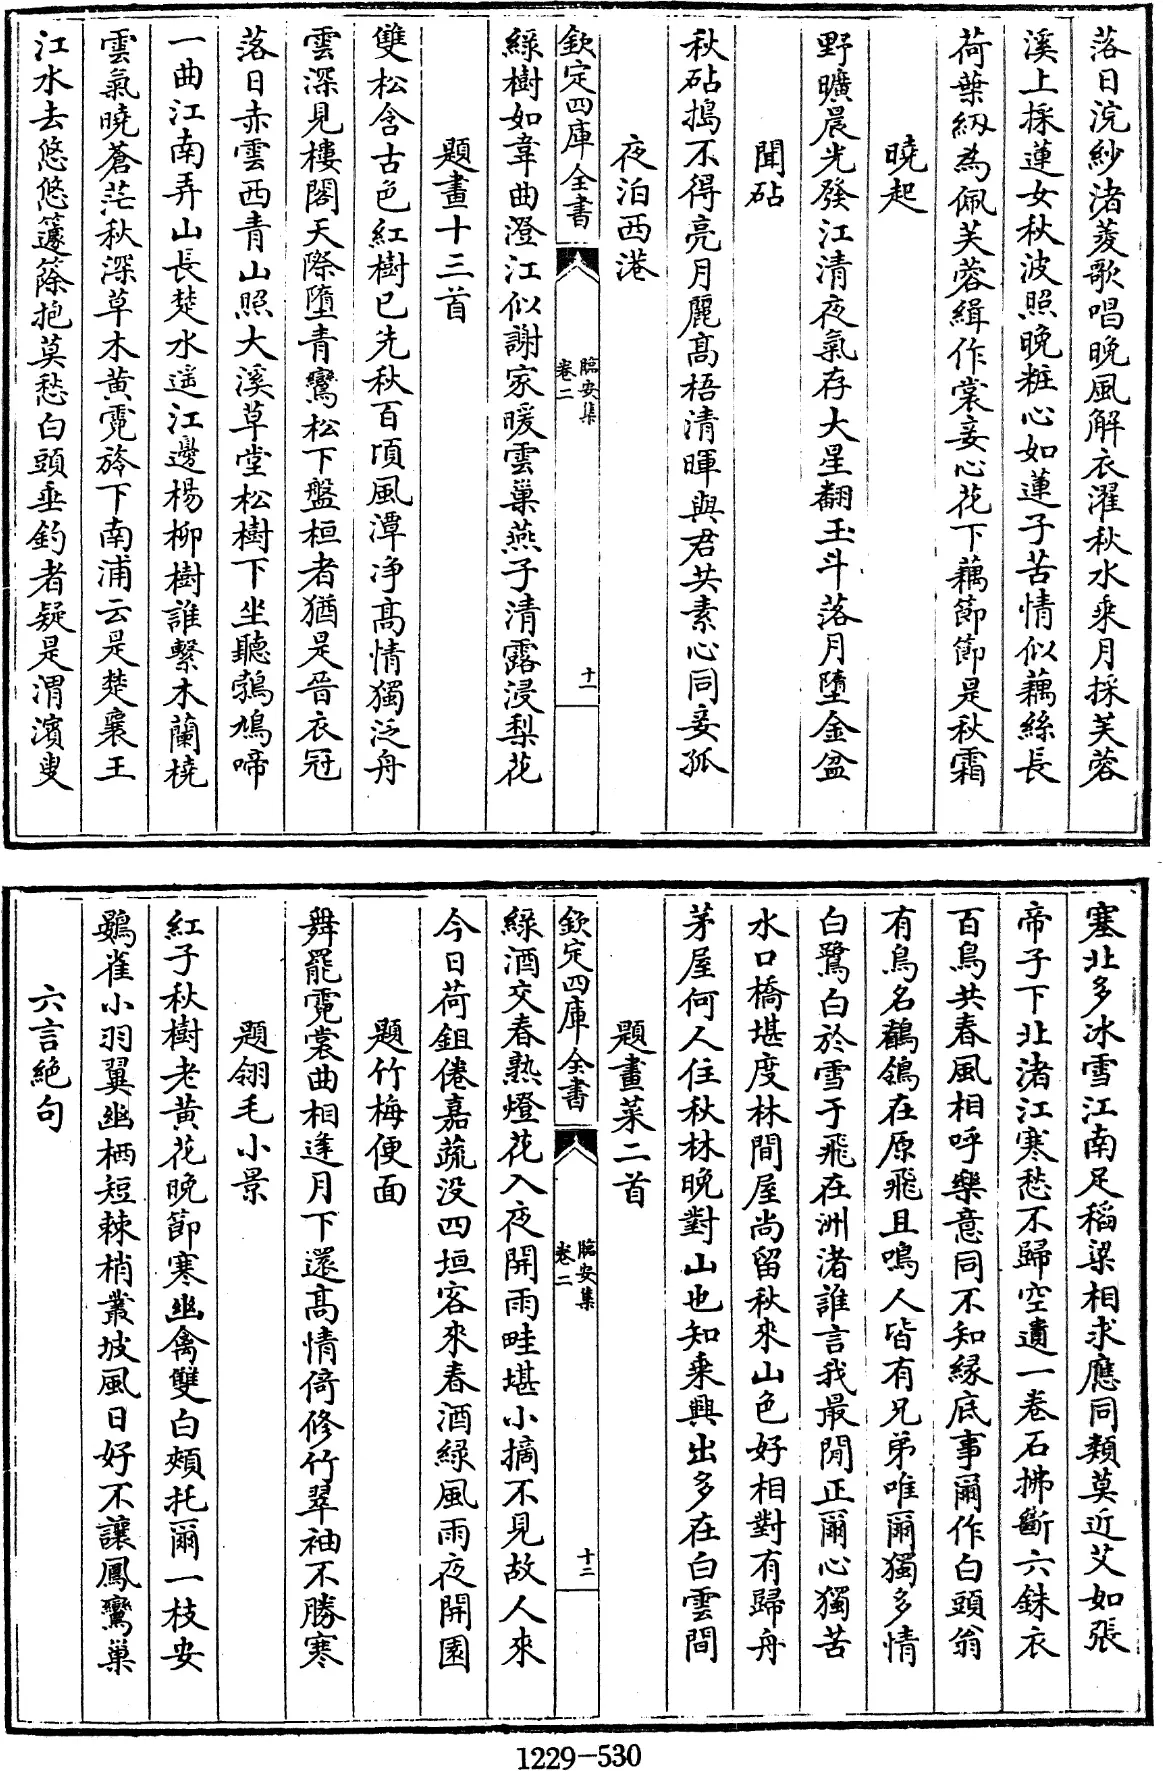 落日浣紗渚菱歌唱晚風解衣濯秋水乘月採芙蓉
溪上採蓮女秋波照晚粧心如蓮子苦情似藕絲長
荷葉紉為佩芙蓉緝作裳妾心花下藕節節是秋霜
曉起
野曠晨光發江清夜氣存大星翻玉斗落月墮金盆
聞砧
秋砧搗不得亮月麗高梧清暉與君共素心同妾孤
夜泊西港
欽定四庫全書
臨安集
卷二
十一
綠樹如韋曲澄江似謝家暖雲巢燕子清露浸梨花
題畫十三首
雙松含古色紅樹已先秋百頃風潭净高情獨泛舟
雲深見樓閣天際墮青鸞松下盤桓者猶是晉衣冠
落日赤雲西青山照大溪草堂松樹下坐聽鵓鳩啼
一曲江南弄山長楚水遥江邊楊柳樹誰繫木蘭橈
雲氣曉蒼茫秋深草木黄霓旍下南浦云是楚襄王
江水去悠悠籧篨抱莫愁白頭垂釣者疑是渭濱叟
塞北多冰雪江南足稻粱相求應同類莫近艾如張
帝子下北渚江寒愁不歸空遺一卷石拂斷六銖衣
百鳥共春風相呼樂意同不知緣底事爾作白頭翁
有鳥名鶺鴒在原飛且鳴人皆有兄弟唯爾獨多情
白鷺白於雪于飛在洲渚誰言我最閒正爾心獨苦
水口橋堪度林間屋尚留秋來山色好相對有歸舟
茅屋何人住秋林晚對山也知乘興出多在白雲間
題畫菜二首
欽定四庫全書
臨安集
卷二
十二
綠酒交春熟燈花入夜開雨畦堪小摘不見故人來
今日荷鉏倦嘉蔬没四垣客來春酒綠風雨夜開園
題竹梅便面
舞罷霓裳曲相逢月下還高情倚修竹翠袖不勝寒
題翎毛小景
紅子秋樹老黄花晚節寒幽禽雙白頰托爾一枝安
鷃雀小羽翼幽栖短棘梢叢坡風日好不讓鳳鸞巢
六言絶句
1229-530